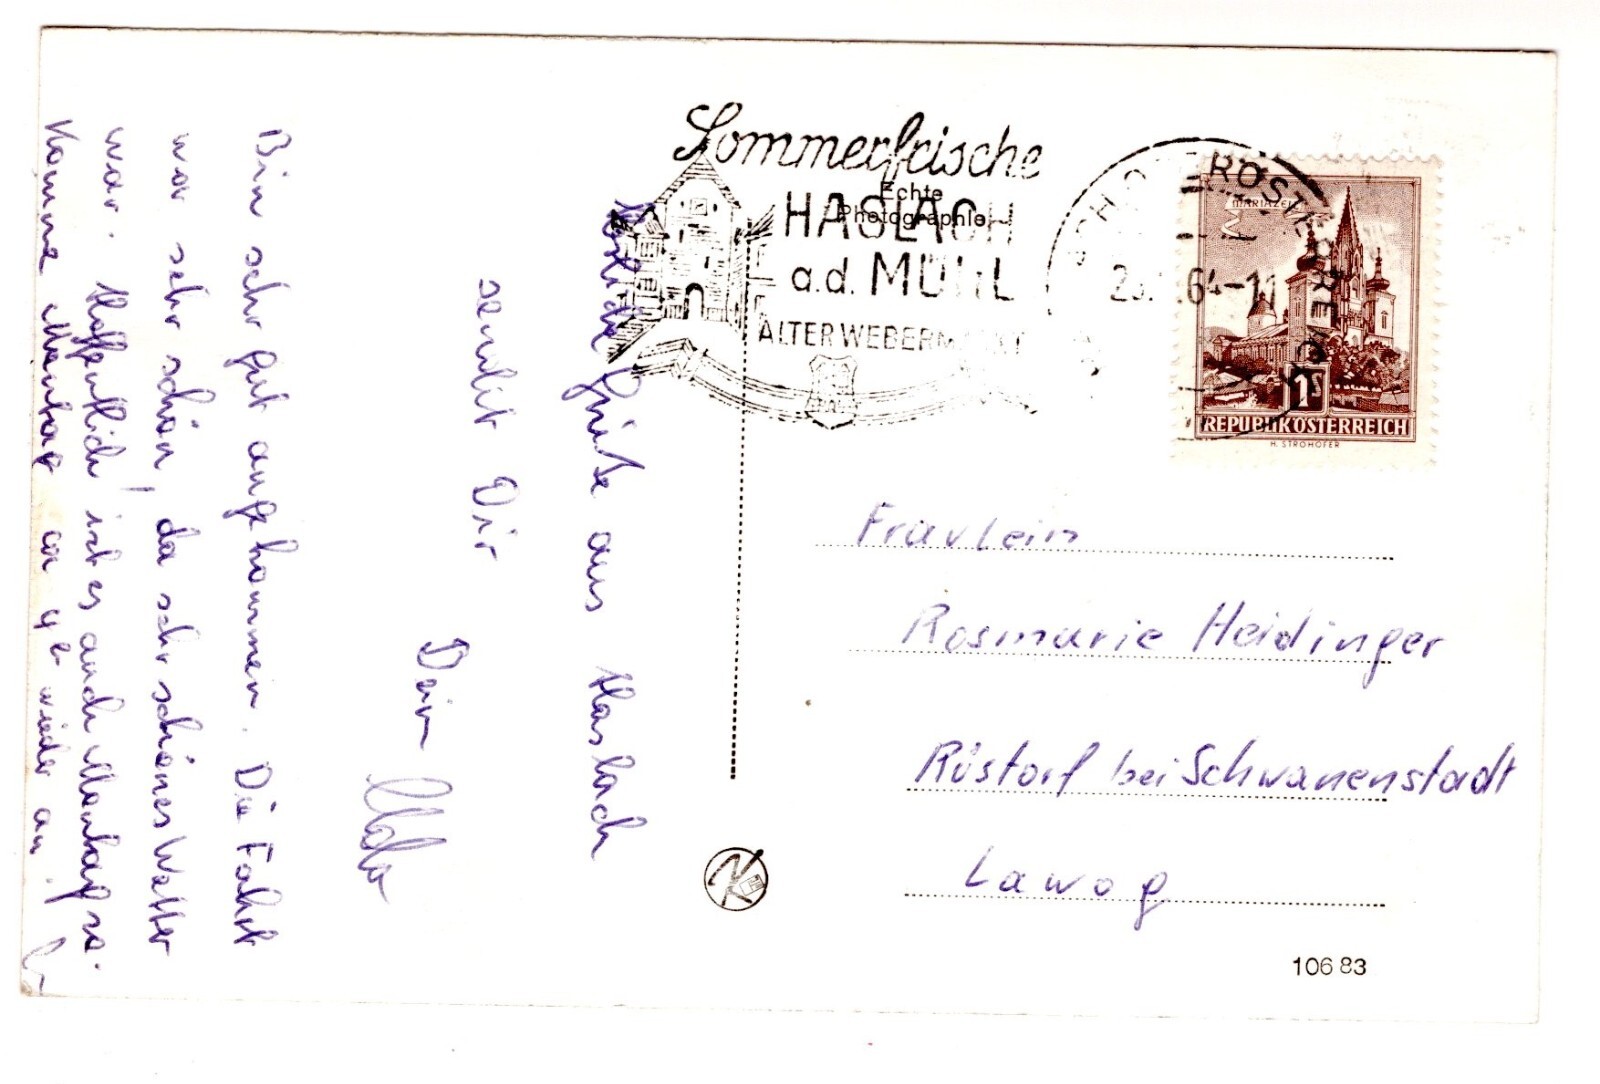 Sommerfrische
HASLACH
a.d. MÜHL
ALTER WEBERMARKT
Echte
Photographie
64-11
MARIAZELL
1S
REPUBLIK ÖSTERREICH
H. STROHOFER
Grüße aus Haslach
sendet Dir
Dein
Bin sehr gut angekommen. Die Fahrt
war sehr schön, da sehr schönes Wetter
war. Hoffentlich ist es auch Montag so.
Komme Montag um wieder an.
Fraulein
Rosmarie Heidinger
Rüstorf bei Schwanenstadt
Lawog
106 83